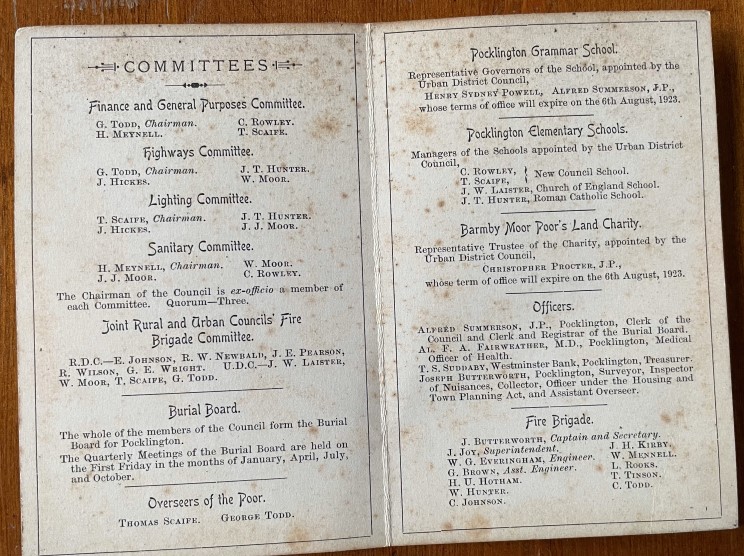 COMMITTEES
Finance and General Purposes Committee.
G. TODD, Chairman. C. ROWLEY.
H. MEYNELL. T. SCAIFE.
Highways Committee.
G. TODD, Chairman. J. T. HUNTER.
J. HICKES. W. MOOR.
Lighting Committee.
T. SCAIFE, Chairman. J. T. HUNTER.
J. HICKES. J. J. MOOR.
Sanitary Committee.
H. MEYNELL, Chairman. W. MOOR.
J. J. MOOR. C. ROWLEY.
The Chairman of the Council is ex-officio a member of
each Committee. Quorum—Three.
Joint Rural and Urban Councils' Fire
Brigade Committee.
R.D.C.—E. JOHNSON, R. W. NEWBALD, J. E. PEARSON,
R. WILSON, G. E. WRIGHT. U.D.C.—J. W. LAISTER,
W. MOOR, T. SCAIFE, G. TODD.
Burial Board.
The whole of the members of the Council form the Burial
Board for Pocklington.
The Quarterly Meetings of the Burial Board are held on
the First Friday in the months of January, April, July,
and October.
Overseers of the Poor.
THOMAS SCAIFE. GEORGE TODD.
Pocklington Grammar School.
Representative Governors of the School, appointed by the
Urban District Council,
HENRY SYDNEY POWELL, ALFRED SUMMERSON, J.P.,
whose terms of office will expire on the 6th August, 1923.
Pocklington Elementary Schools.
Managers of the Schools appointed by the Urban District
Council,
C. ROWLEY,
T. SCAIFE, } New Council School.
J. W. LAISTER, Church of England School.
J. T. HUNTER, Roman Catholic School.
Barmby Moor Poor's Land Charity.
Representative Trustee of the Charity, appointed by the
Urban District Council,
CHRISTOPHER PROCTER, J.P.,
whose term of office will expire on the 6th August, 1923.
Officers.
ALFRED SUMMERSON, J.P., Pocklington, Clerk of the
Council and Clerk and Registrar of the Burial Board.
AL. F. A. FAIRWEATHER, M.D., Pocklington, Medical
Officer of Health.
T. S. SUDDABY, Westminster Bank, Pocklington, Treasurer.
JOSEPH BUTTERWORTH, Pocklington, Surveyor, Inspector
of Nuisances, Collector, Officer under the Housing and
Town Planning Act, and Assistant Overseer.
Fire Brigade.
J. BUTTERWORTH, Captain and Secretary.
J. JOY, Superintendent. J. H. KIRBY.
W. G. EVERINGHAM, Engineer. W. MENNELL.
G. BROWN, Asst. Engineer. L. ROOKS.
H. U. HOTHAM. T. TINSON.
W. HUNTER. C. TODD.
C. JOHNSON.